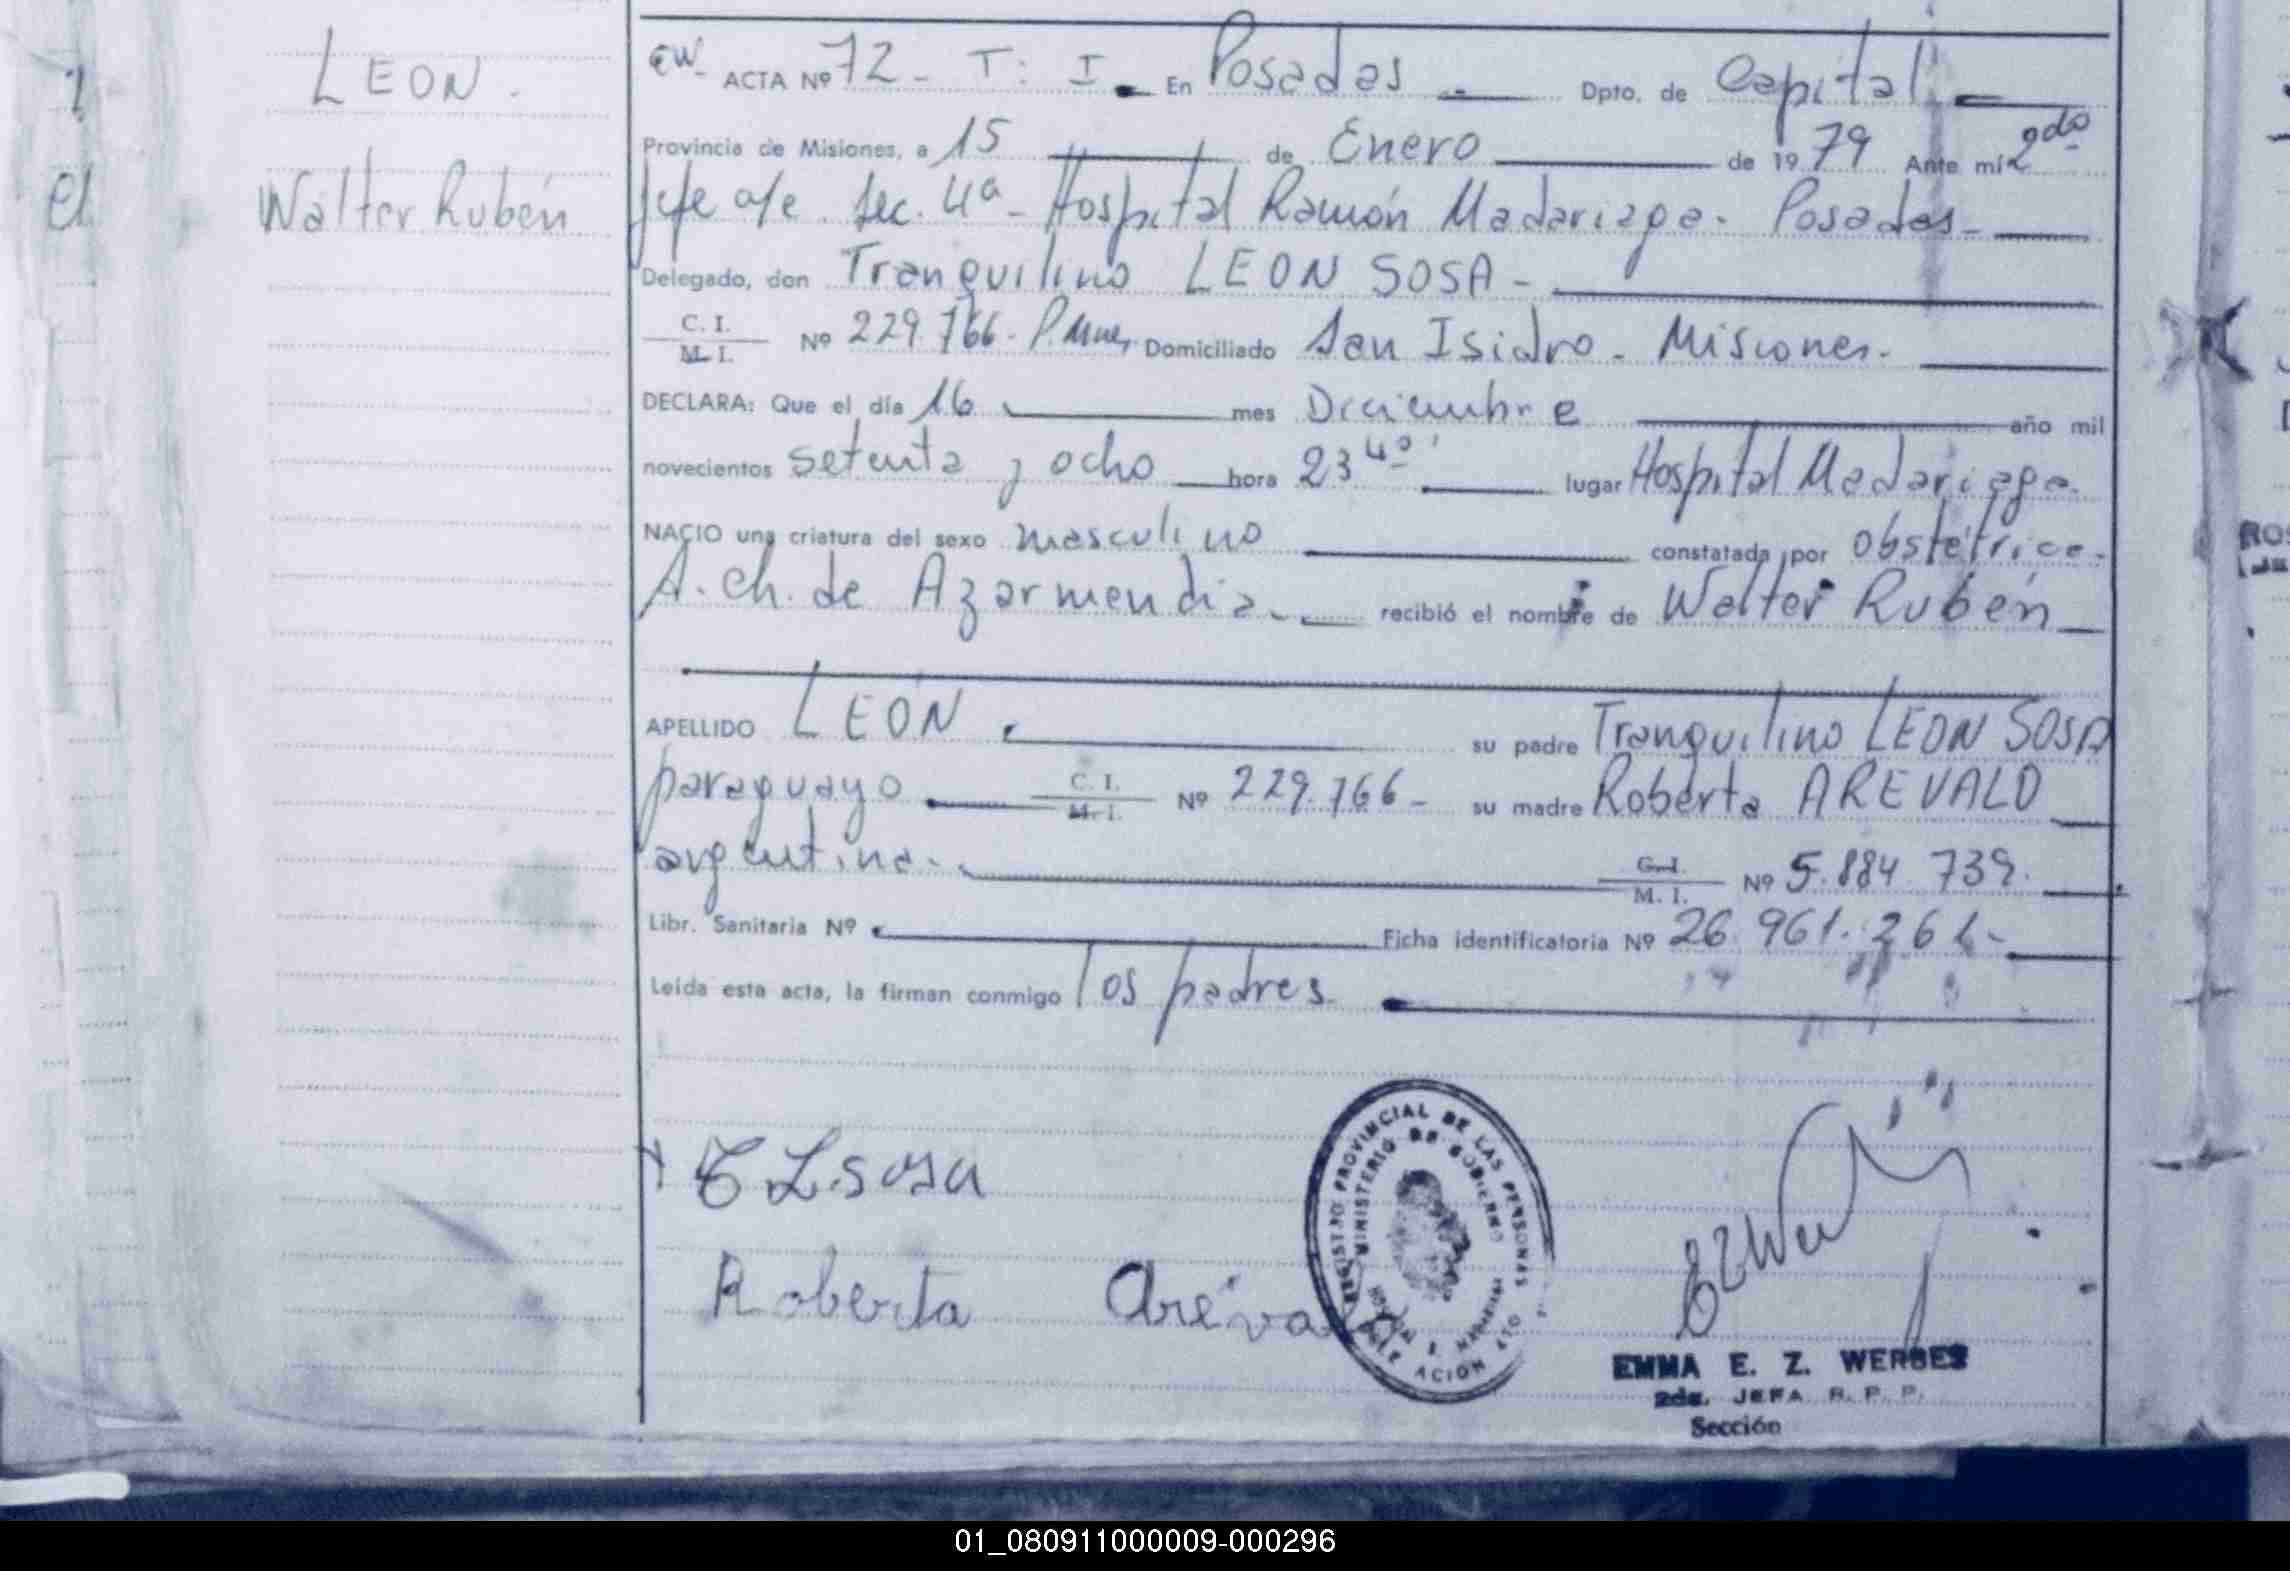 LEON.
Walter Rubén
EW. ACTA Nº 72 - T: I. En Posadas Dpto. de Capital
Provincia de Misiones, a 15 de Enero de 1979 Ante mí 2do
Jefe a/c Sec. 4ª - Hospital Ramón Madariaga. Posadas -
Delegado, don Tranquilino LEON SOSA -
C. I.
M. I. Nº 229.766. P. Mnes, Domiciliado San Isidro - Misiones.
DECLARA: Que el día 16 mes Diciembre año mil
novecientos setenta y ocho hora 23 40' lugar Hospital Madariaga.
NACIO una criatura del sexo masculino constatada por obstétrica.
A. Ch. de Azarmendia. recibió el nombre de Walter Rubén
APELLIDO LEON. su padre Tranquilino LEON SOSA
paraguayo C. I.
M. I. Nº 229.766 - su madre Roberta AREVALO
argentina. C. I.
M. I. Nº 5.884.739.
Libr. Sanitaria Nº Ficha identificatoria Nº 26.961.261 -
Leída esta acta, la firman conmigo los padres.
T L. sosa
Roberta Aréva
REGISTRO PROVINCIAL DE LAS PERSONAS
MINISTERIO DE GOBIERNO
EMMA E. Z. WERBES
2da. JEFA R. P. P.
Sección
01_080911000009-000296